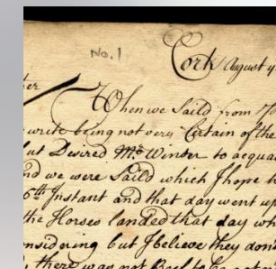 No. 1
Cork August 4
ter
When we Saild from
write being not very Certain of the
ut Desired Mr Winter to acqua
nd we were Saild which I hope h
6th Instant and that day went up
the Horses landed that day wh
nsidering but I believe they don
there was not